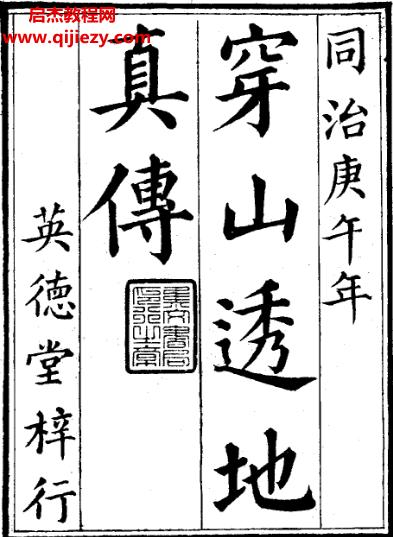 启杰教程网
www.qijiezy.com
同治庚午年
穿山透地
真傳
集文書局
印行之章
英德堂梓行